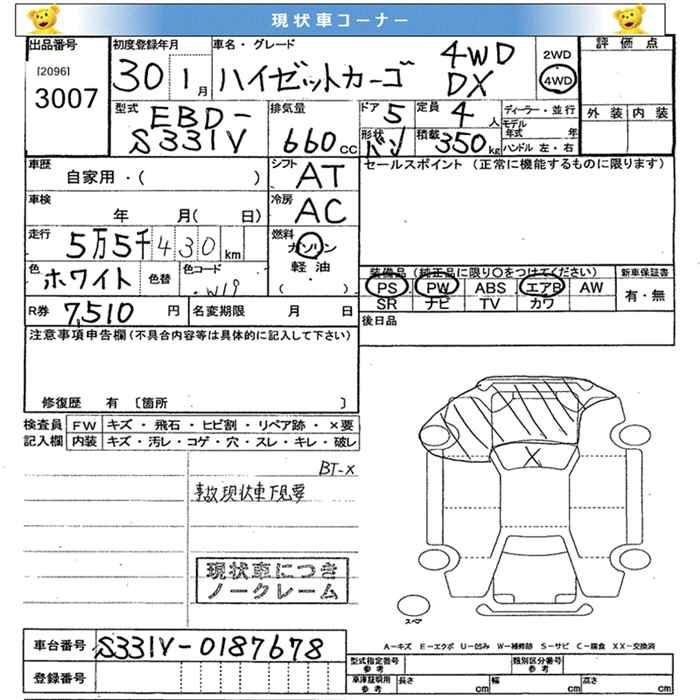 現状車コーナー
出品番号
[2096]
3007
初度登録年月
30 1月
車名・グレード
ハイゼットカーゴ 4WD DX
2WD
4WD
評価点
外装 内装
型式
EBD-
S331V
排気量
660cc
ドア 5
定員 4人
形状 バン
積載 350kg
ディーラー・並行
モデル年式 年
ハンドル 左・右
車歴
自家用・( )
シフト AT
セールスポイント (正常に機能するものに限ります)
車検
年 月( 日)
冷房 AC
走行 5万5千430km
燃料
ガソリン
軽油
( )
色 ホワイト 色替 色コード W19
装備品 (純正品に限り○をつけてください)
PS PW ABS エアB AW
SR ナビ TV カワ
新車保証書
有・無
R券 7,510円
名変期限 月 日
後日品
注意事項申告欄 (不具合内容等は具体的に記入して下さい)
修復歴 有 〔箇所 〕
検査員記入欄
FW キズ・飛石・ヒビ割・リペア跡・×要
内装 キズ・汚レ・コゲ・穴・スレ・キレ・破レ
BT-X
事故現状車下見要
現状車につき
ノークレーム
X
スペア
車台番号 S331V-0187678
登録番号
A-キズ E-エクボ U-凹み W-補修跡 S-サビ C-腐食 XX-交換済
型式指定番号 参考
類別区分番号 参考
車庫証明用 参考
長さ cm 幅 cm 高さ cm